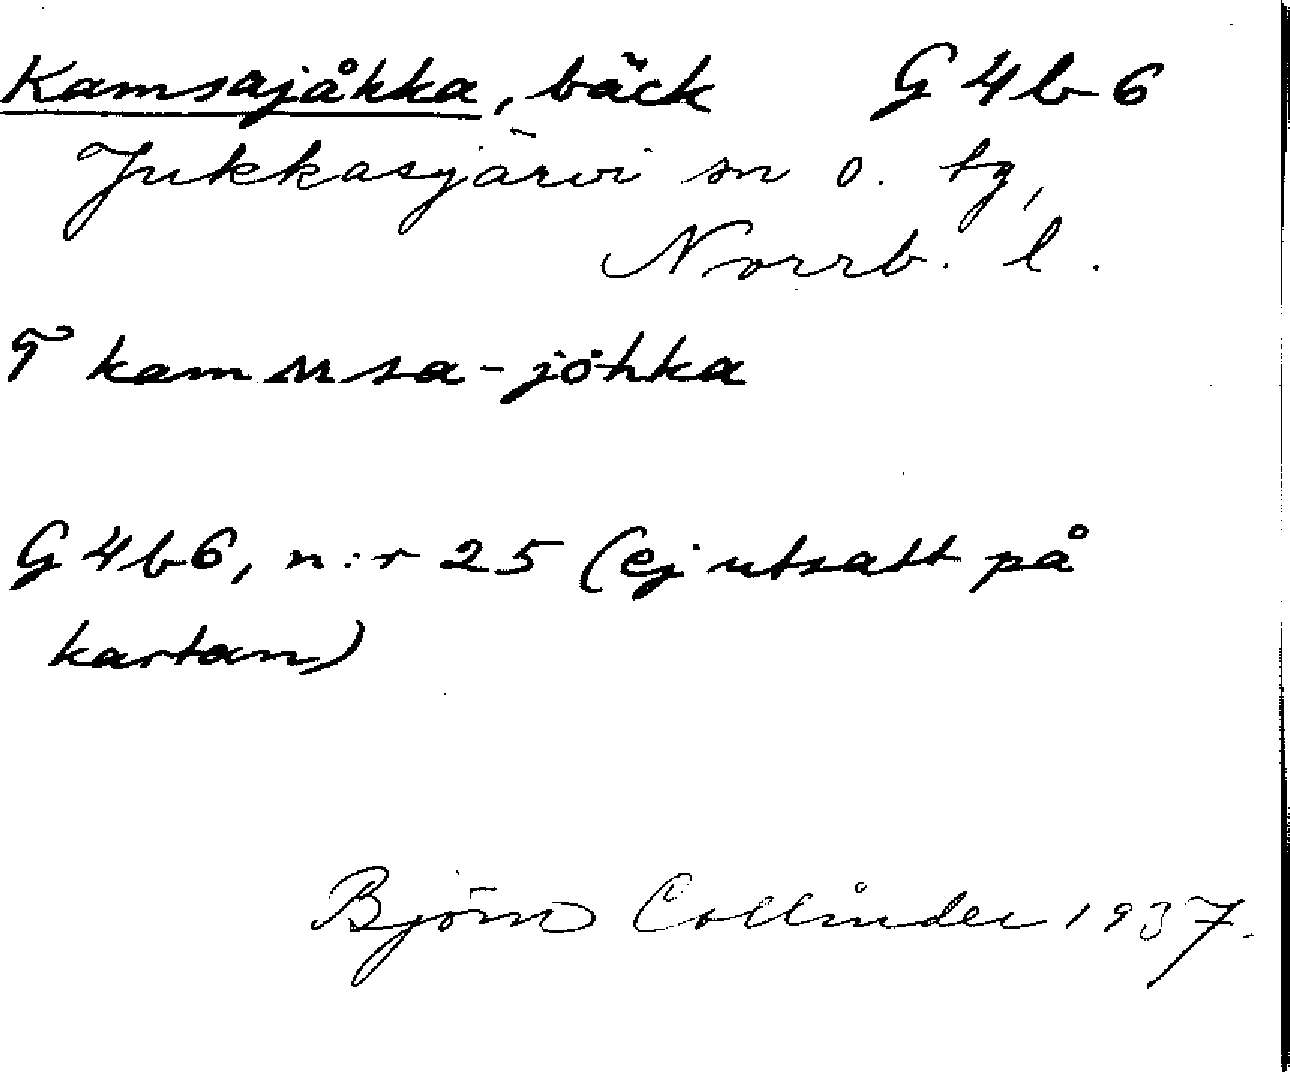 Kamsajåkka, bäck G4b6
Jukkasjärvi sn o. tg,
Norrb. l.
T kamMsa-jòhka
G4b6, n:r 25 (ej utsatt på
kartan)
Björn Collinder 1937.